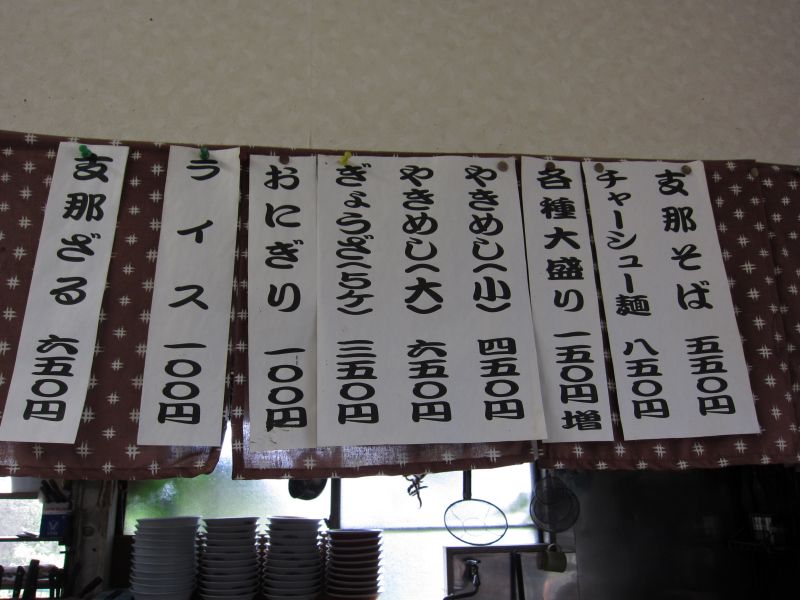 支那そば 五五〇円
チャーシュー麺 八五〇円
各種大盛り 一五〇円増
やきめし(小) 四五〇円
やきめし(大) 六五〇円
ぎょうざ(5ケ) 三五〇円
おにぎり 一〇〇円
ライス 一〇〇円
支那ざる 六五〇円